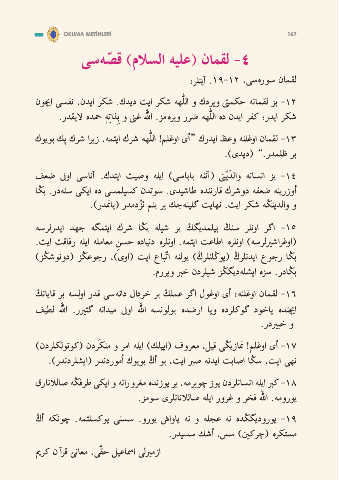 OKUMA METİNLERİ
167
٤- لقمان (عليه السلام) قصّه‌سى
لقمان سوره‌سى، ١٢-١٩. آيتلر:
١٢- بز لقمانه حكمتى ويردك و اللّٰهه شكر ايت ديدك. شكر ايدن، نفسى ايچون
شكر ايدر؛ كفر ايدن ده اللّٰهه ضرر ويره‌مز. اللّٰه غنى و بِذاتِه حمده لايقدر.
١٣- لقمان اوغلنه وعظ ايدرك ”اى اوغلم! اللّٰهه شرك ايتمه. زيرا شرك پك بويوك
بر ظلمدر.“ (ديدى).
١٤- بز انسانه والدَيْنى (آننه باباسى) ايله وصيت ايتدك. آناسى اونى ضعف
اوزرينه ضعفه دوشرك قارننده طاشيدى. سوتدن كسيلمسى ده ايكى سنه‌در. بڭا
و والدينڭه شكر ايت. نهايت گلينه‌جك ير بنم نزدمدر (يانمدر).
١٥- اگر اونلر سنڭ بيلمديگڭ بر شيله بڭا شرك ايتمگه جهد ايدرلرسه
(اوغراشيرلرسه) اونلره اطاعت ايتمه. اونلره دنياده حسن معامله ايله رفاقت ايت.
بڭا رجوع ايدنلرڭ (يوڭلنلرڭ) يولنه اتّباع ايت (اوى). رجوعڭز (دونوشڭز)
بڭادر. سزه ايشله‌ديگڭز شيلردن خبر ويررم.
١٦- لقمان اوغلنه: اى اوغول اگر عملڭ بر خردال دانه‌سى قدر اولسه بر قايانڭ
ايچنده ياخود گوكلرده ويا ارضده بولونسه اللّٰه اونى ميدانه گتيرر. اللّٰه لطيف
و خبيردر.
١٧- اى اوغلم! نمازيڭى قيل، معروف (اييلك) ايله امر و منكَردن (كوتولكلردن)
نهى ايت، سڭا اصابت ايدنه صبر ايت، بو اڭ بويوك اُموردندر (ايشلردندر).
١٨- كبر ايله انسانلردن يوز چويرمه. بر يوزنده مغرورانه و ايكى طرفڭه صاللانارق
يورومه. اللّٰه فخر و غرور ايله صاللانانلرى سومز.
١٩- يوروديگڭده نه عجله و نه ياواش يورو. سسنى يوكسلتمه. چونكه اڭ
مستكره (چركين) سس، أشك سسيدر.
ازميرلى اسماعيل حقّى، معانئ قرآن كريم